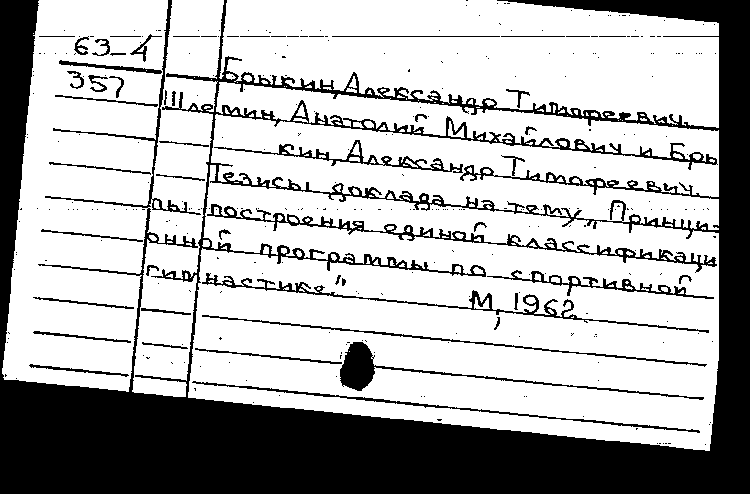 63-4
357
Брыкин, Александр Тимофеевич.
Шлемин, Анатолий Михайлович и Бры
кин, Александр Тимофеевич.
Тезисы доклада на тему „Принци=
пы построения единой классификаци
онной программы по спортивной
гимнастике."
М, 1962